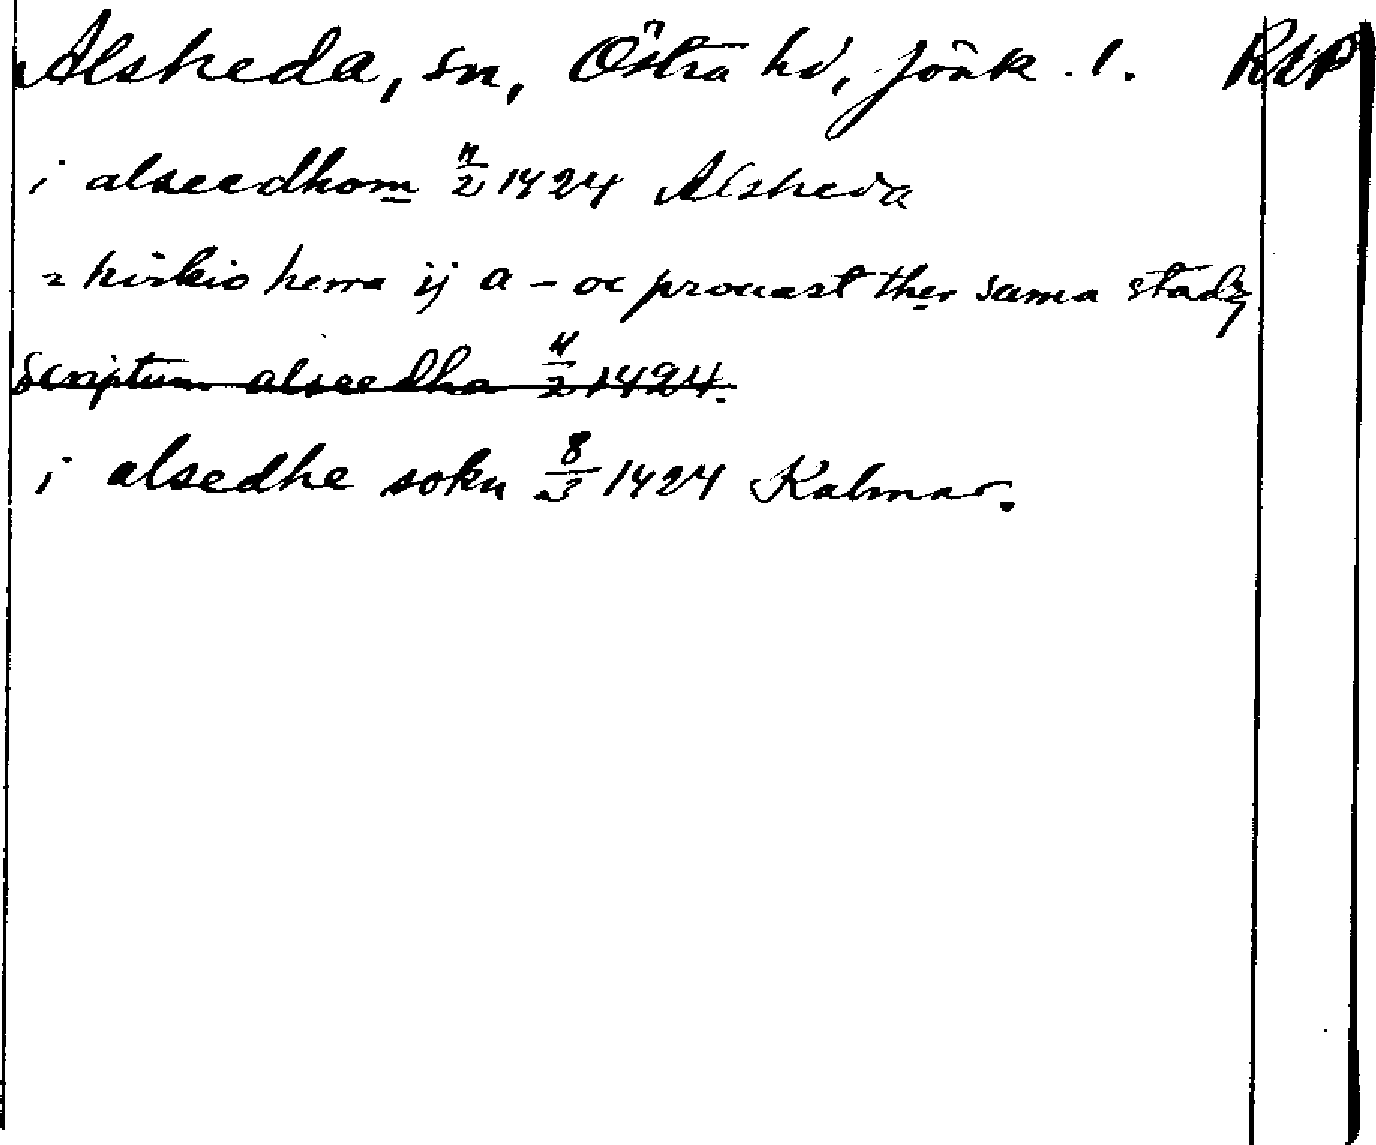 Alsheda, sn, Östra hd, Jönk. l. RAP
i alseedhom 11/2 1424 Alsheda
= kirkio herra ij a – oc prouast ther sama stadz
Scriptum alseedha 11/2 1424.
i alsedhe sokn 8/3 1424 Kalmar.